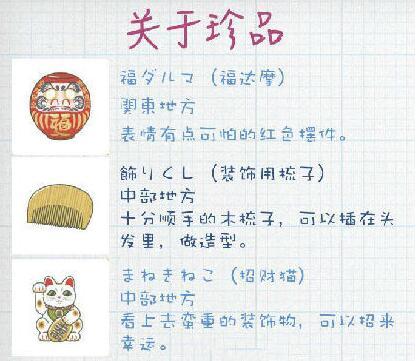 关于珍品
福ダルマ（福达摩）
関東地方
表情有点可怕的红色摆件。
飾りくし（装饰用梳子）
中部地方
十分顺手的木梳子，可以插在头
发里，做造型。
まねきねこ（招财猫）
中部地方
看上去蛮重的装饰物，可以招来
幸运。
福